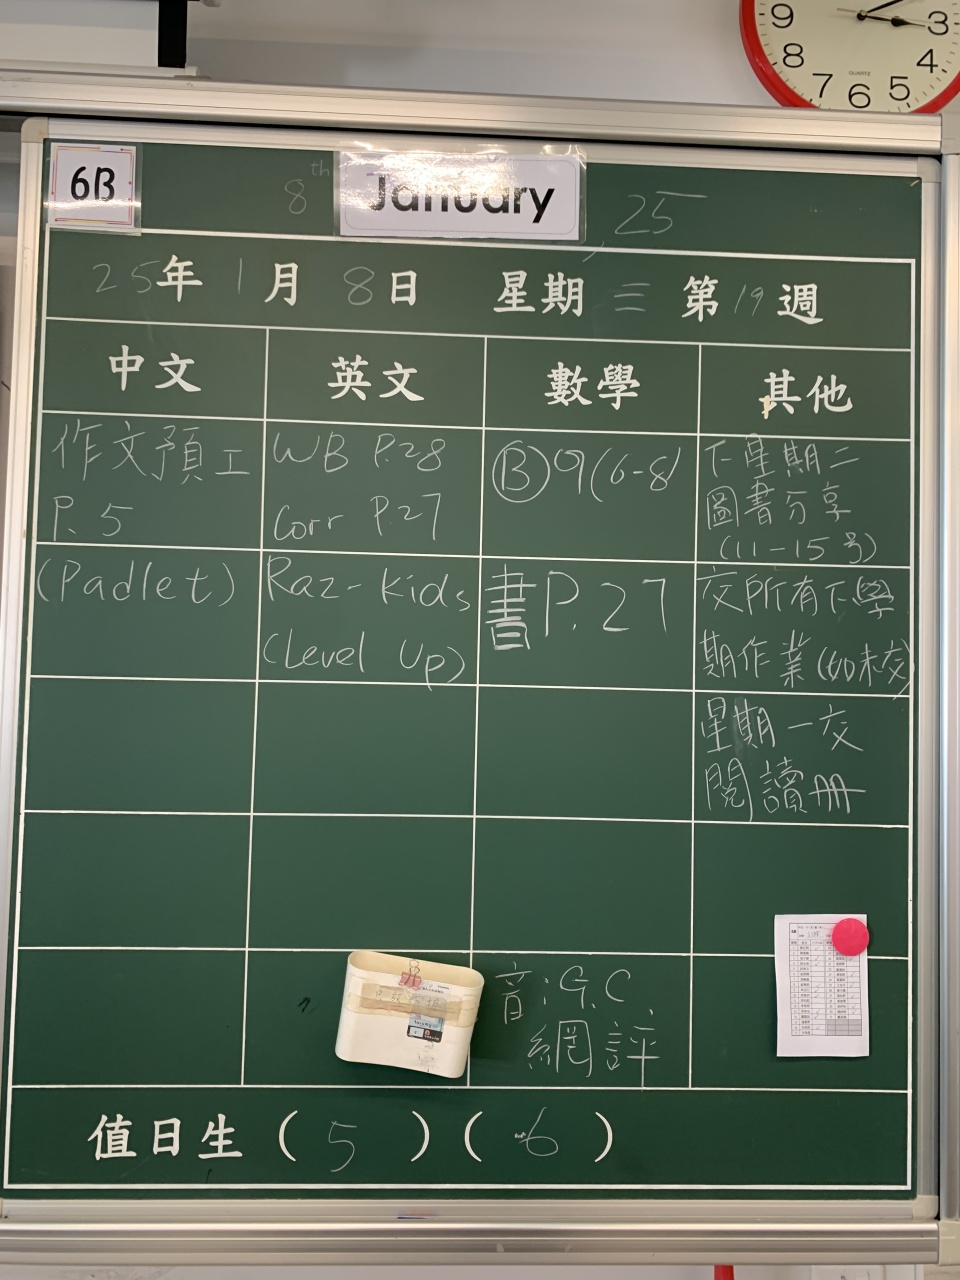 9
3
8
4
7
6
5
QUARTZ
6B
8th January, 25
25年1月8日 星期三 第19週
中文
英文
數學
其他
作文預工
P.5
WB P.28
Corr P.27
Ⓑ9(6-8)
下星期二
圖書分享
(11-15號)
(Padlet)
Raz-Kids
(Level Up)
書P.27
交所有下學
期作業(如未交)
星期一交
閱讀冊
音:G.C.
網評
值日生(5)(6)